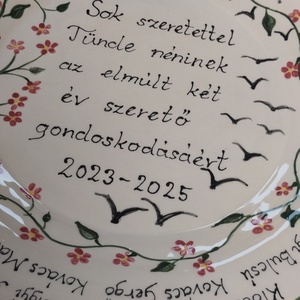 Sok szeretettel
Tünde néninek
az elmúlt két
év szerető
gondoskodásáért
2023-2025
Bulcsú
Kovács Gergő
Kovács